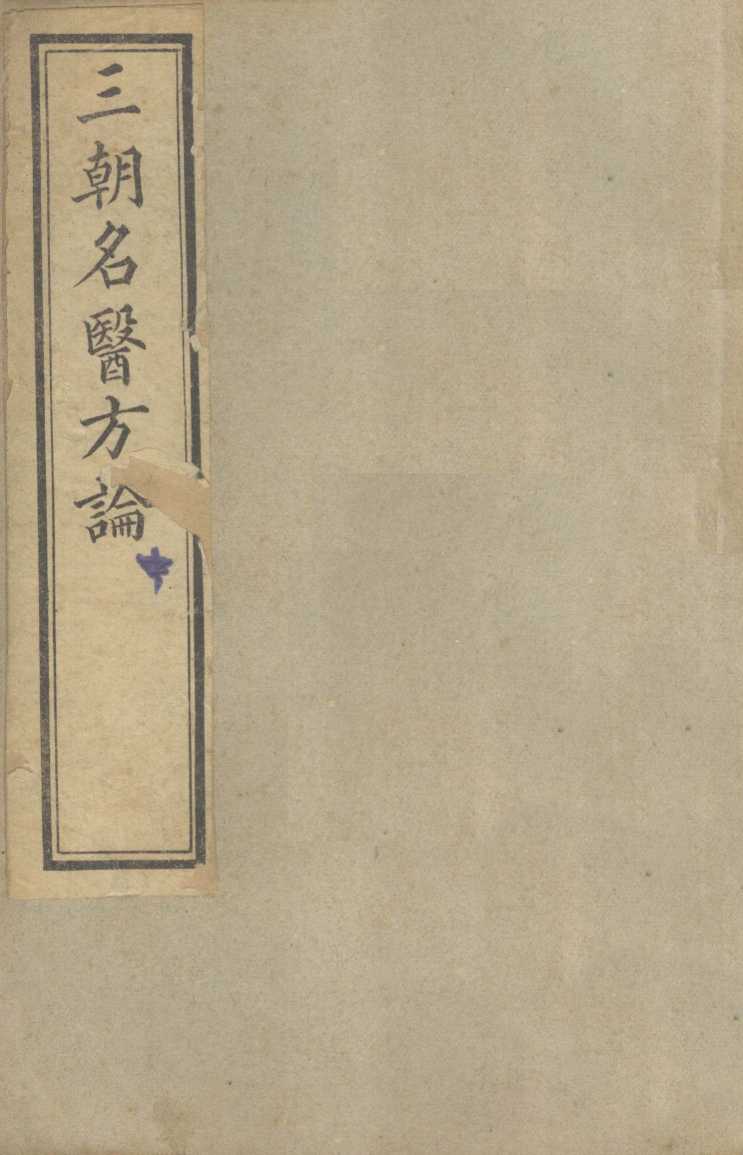 三朝名醫方論